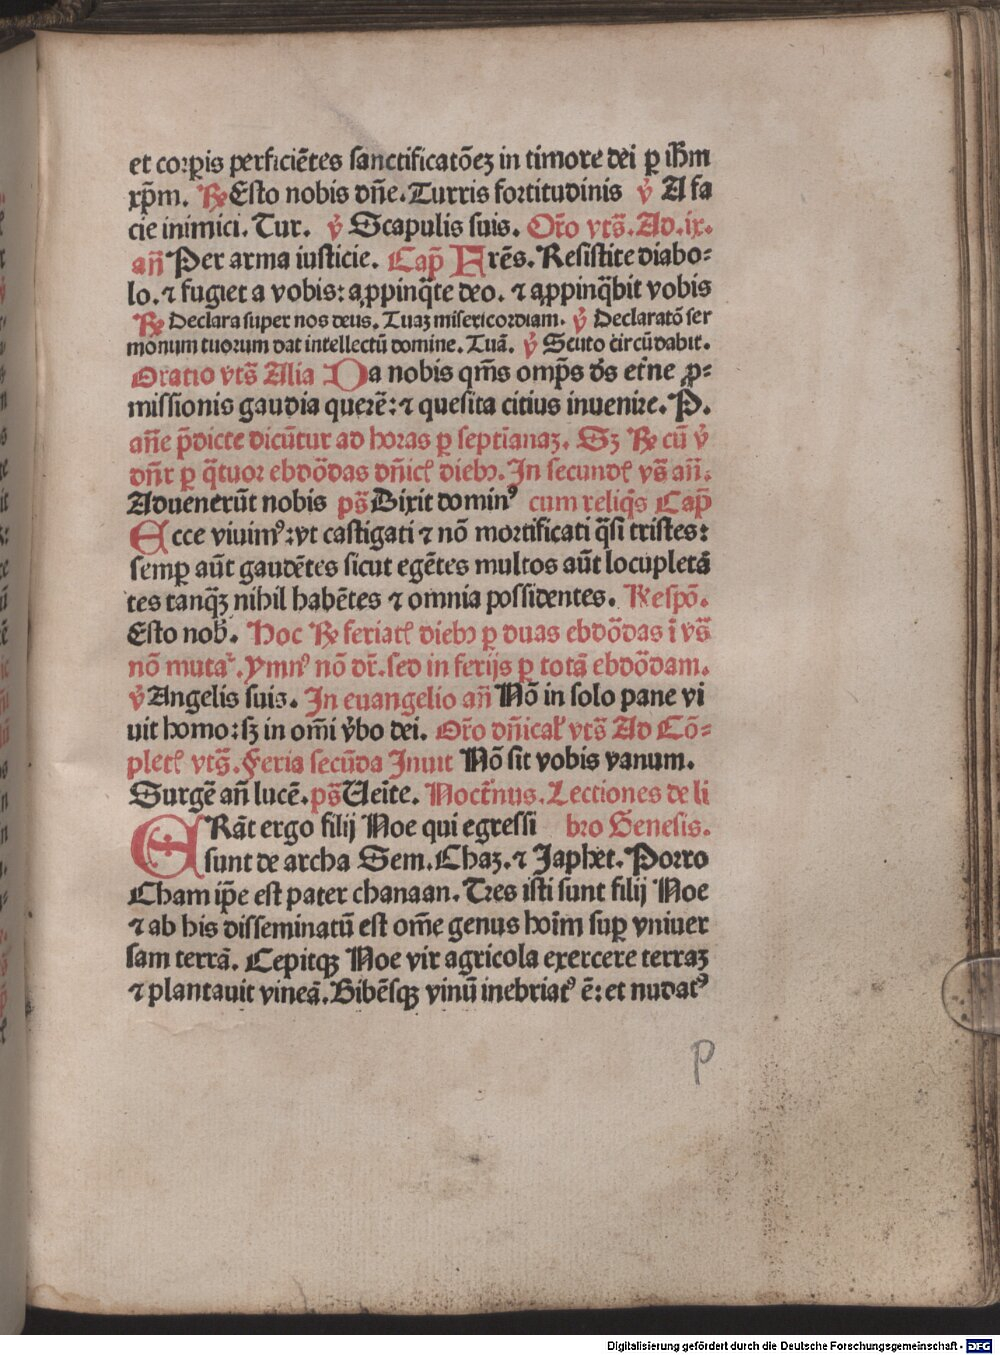 et corꝑis perficiētes sanctificatōeʒ in timore dei ꝑ ihm̄
xp̄m. ℟ Esto nobis dn̄e. Turris fortitudinis ℣ A fa
cie inimici. Tur. ℣ Scapulis suis. Or̄o vts̄. Ad. ix.
an̄ Per arma iusticie. Cap̄ Frēs. Resistite diabo⸗
lo. ⁊ fugiet a vobis: aꝓpinq̄te deo. ⁊ aꝓpinq̄bit vobis
℟ Declara super nos deus. Tuaʒ misericordiam. ℣ Declaratō ser
monum tuorum dat intellectū domine. Tuā. ℣ Scuto circūdabit.
Oratio vts̄ Alia Da nobis qm̄s omp̄s ds̄ etn̄e ꝓ⸗
missionis gaudia querē: ⁊ quesita citius inuenire. P.
an̄e p̄dicte dicūtur ad horas ꝑ septīanaʒ. Sʒ ℟ cū ℣
dn̄r ꝑ q̄tuor ebdōdas dn̄icꝭ diebꝫ. In secundꝭ vs̄ an̄.
Aduenerūt nobis ps̄ Dixit dominꝰ cum reliq̄s Cap̄
Ecce viuimꝰ: vt castigati ⁊ nō mortificati q̄si tristes:
semꝑ aūt gaudētes sicut egētes multos aūt locupletā
tes tanqꝫ nihil habētes ⁊ omnia possidentes. Respō.
Esto nob̄. Hoc ℟ feriatꝭ diebꝫ ꝑ duas ebdōdas ī vs̄
nō mutaᷣ. ymnꝰ nō dr̄. sed in ferijs ꝑ totā ebdōdam.
℣ Angelis suis. In euangelio an̄ Nō in solo pane vi
uit homo: sʒ in om̄i v̄bo dei. Or̄o dn̄icał vts̄ Ad Cō⸗
pletꝭ vts̄. Feria secūda Inuit Nō sit vobis vanum.
Surgē an̄ lucē. ps̄ Ueīte. Noctn̄us. Lectiones de li
ERāt ergo filij Noe qui egressi bro Genesis.
sunt de archa Sem. Chaʒ. ⁊ Japhet. Porro
Cham ip̄e est pater chanaan. Tres isti sunt filij Noe
⁊ ab his disseminatū est om̄e genus hoīm suꝑ vniuer
sam terrā. Cepitqꝫ Noe vir agricola exercere terraʒ
⁊ plantauit vineā. Bibēsqꝫ vinū inebriatꝰ ē: et nudatꝰ
p
Digitalisierung gefördert durch die Deutsche Forschungsgemeinschaft - DFG